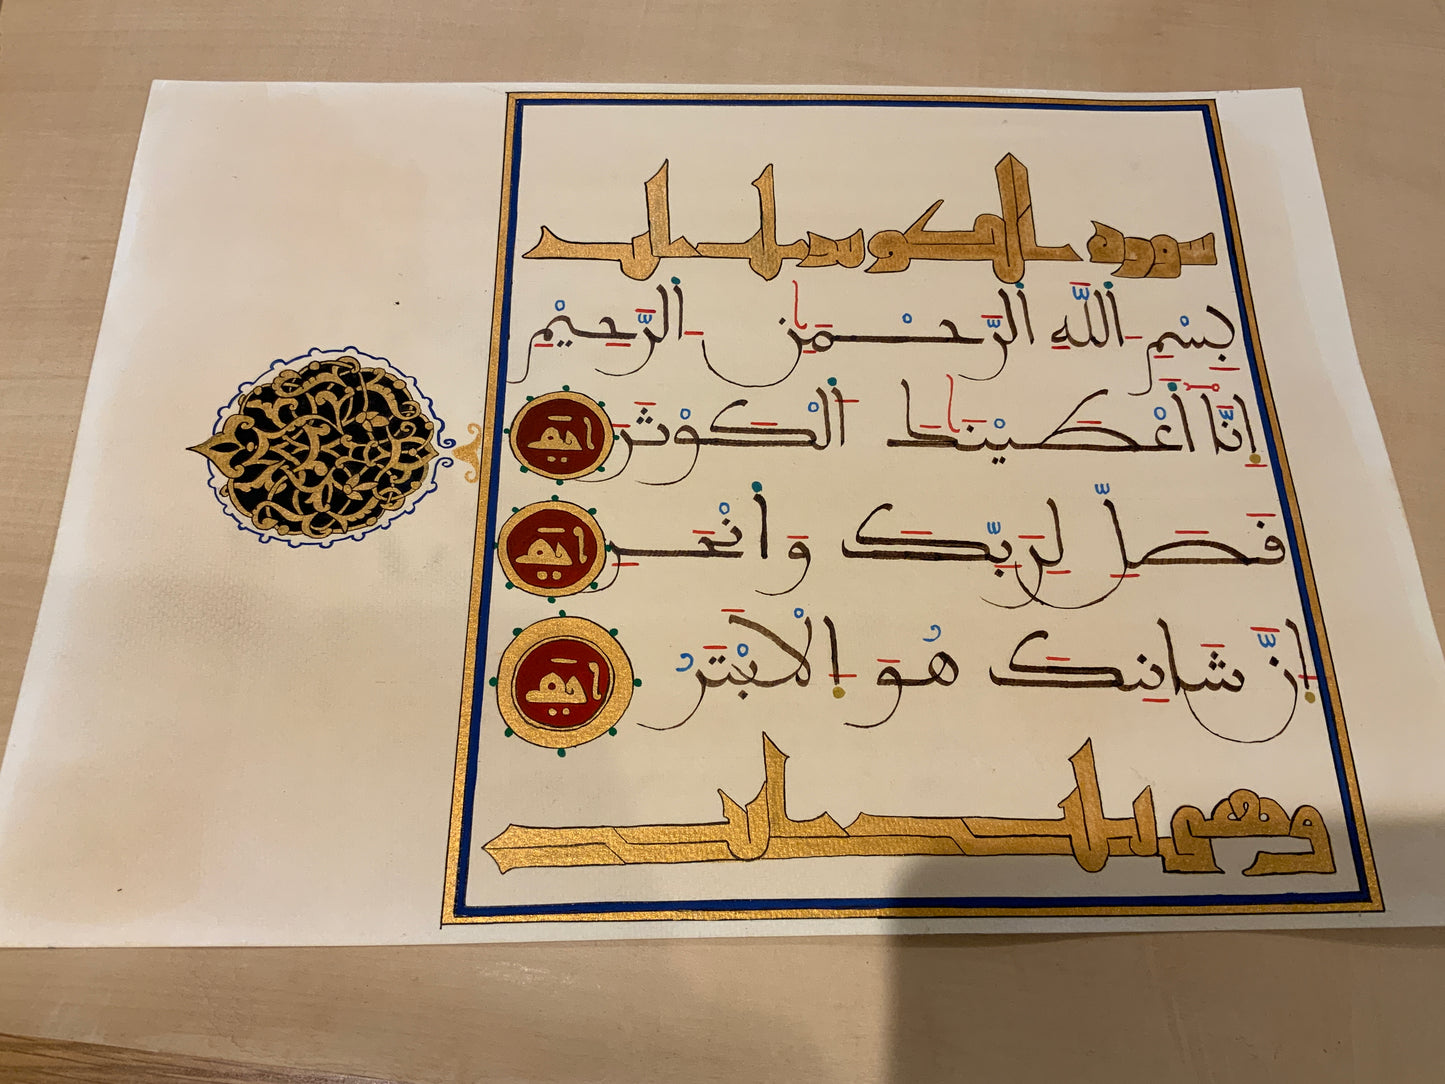 سورة الكوثر
بِسْمِ اللَّهِ الرَّحْمَٰنِ الرَّحِيمِ
إِنَّا أَعْطَيْنَٰكَ الْكَوْثَرَ اية
فَصَلِّ لِرَبِّكَ وَانْحَرِ اية
إِنَّ شَانِئَكَ هُوَ الْأَبْتَرُ اية